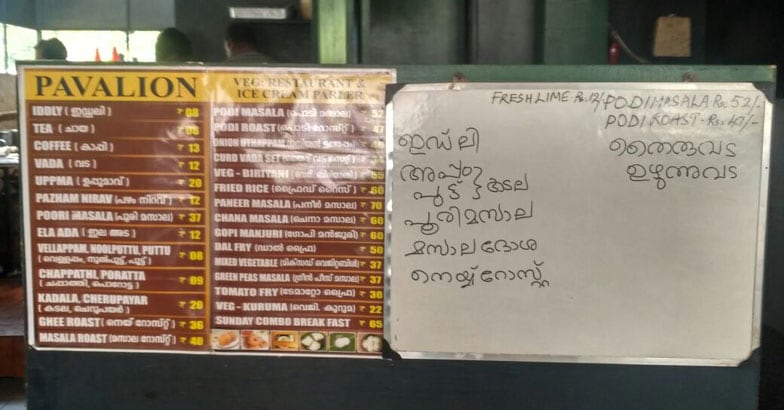 PAVALION
IDDLY ( ഇഡ്ഡലി ) ₹ 08
TEA ( ചായ ) ₹ 08
COFFEE ( കാപ്പി ) ₹ 13
VADA ( വട ) ₹ 12
UPPMA ( ഉപ്പുമാവ് ) ₹ 20
PAZHAM NIRAV (പഴം നിറവ് ) ₹ 12
POORI MASALA (പൂരി മസാല) ₹ 37
ELA ADA ( ഇല അട ) ₹ 12
VELLAPPAM, NOOLPUTTU, PUTTU
( വെള്ളപ്പം, നൂൽപുട്ട്, പുട്ട് ) ₹ 08
CHAPPATHI, PORATTA
( ചപ്പാത്തി, പൊറോട്ട ) ₹ 09
KADALA, CHERUPAYAR
( കടല, ചെറുപയർ ) ₹ 20
GHEE ROAST ( നെയ് റോസ്റ്റ് ) ₹ 36
MASALA ROAST (മസാല റോസ്റ്റ്) ₹ 40
VEG: RESTAURANT &
ICE CREAM PARLER
PODI MASALA (പൊടി മസാല) 52
PODI ROAST (പൊടി റോസ്റ്റ്) ₹ 47
ONION UTHAPPAM
CURD VADA SET
VEG - BIRIYANI
FRIED RICE (ഫ്രൈഡ് റൈസ് ) ₹ 60
PANEER MASALA (പനീർ മസാല) ₹ 70
CHANA MASALA (ചെനാ മസാല) ₹ 60
GOPI MANJURI (ഗോപി മൻജൂരി) ₹ 60
DAL FRY (ഡാൽ ഫ്രൈ) ₹ 50
MIXED VEGETABLE (മിക്സഡ് വെജിറ്റബിൾ) ₹ 37
GREEN PEAS MASALA (ഗ്രീൻ പീസ് മസാല) ₹ 37
TOMATO FRY (ടേമാറ്റോ ഫ്രൈ) ₹ 30
VEG - KURUMA (വെജി. കുറുമ) ₹ 22
SUNDAY COMBO BREAK FAST ₹ 65
FRESH LIME - Rs. 12/- PODI MASALA Rs. 52/-
PODI ROAST - Rs. 47/-
ഇഡ്ലി
തൈരുവട
അപ്പം
ഉഴുന്നവട
പുട്ട് കടല
പൂരിമസാല
മസാലദോശ
നെയ്യ്റോസ്റ്റ്